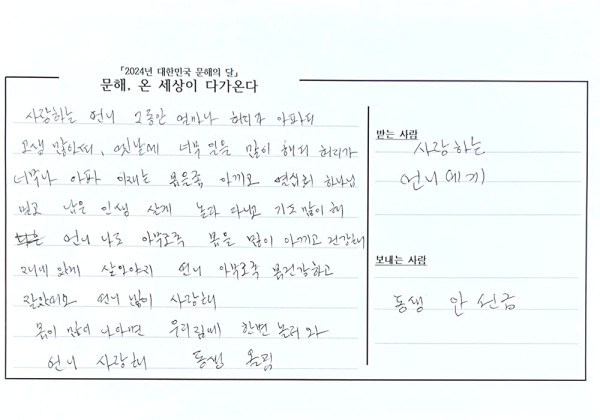 「2024년 대한민국 문해의 달」
문해, 온 세상이 다가온다
사랑하는 언니 그동안 얼마나 허리가 아파서
고생 많았서, 옛날에 너무 일을 많이 해서 허리가
너무나 아파 이재는 몸을 아끼고 열심히 하나님
믿고 남은 인생 살게 놀러 다니고 기도 많이 해
언니 나도 아무로록 몸을 많이 아끼고 건강해
재미 있게 살아야지 언니 아무로록 몸건강하고
잘있어요 언니 많이 사랑해
몸이 많이 나아면 우리집에 한번 놀러 와
언니 사랑해 동생 올림
받는 사람
사랑하는
언니에게
보내는 사람
동생 안선금